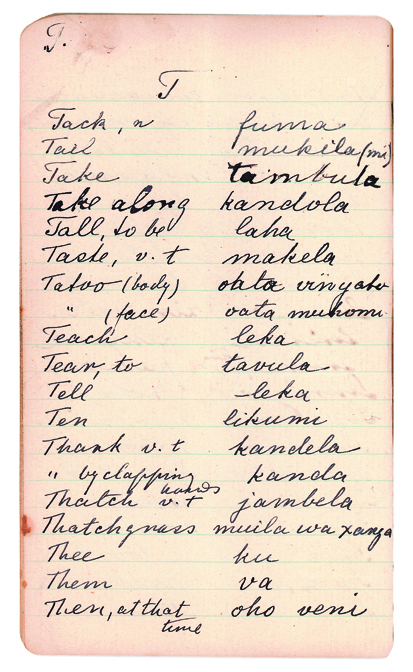 T.
T
Tack, n fuma
Tail mukila (mi)
Take tambula
Take along kandola
Tall, to be laha
Taste, v. t makela
Tatoo (body) oata vinyato
" (face) oata mukomi
Teach leka
Tear, to tavula
Tell -leka
Ten likumi
Thank v. t kandela
" by clapping hands kanda
Thatch v. t jambela
Thatchgrass muila wa xanga
Thee ku
Them va
Then, at that time oho veni